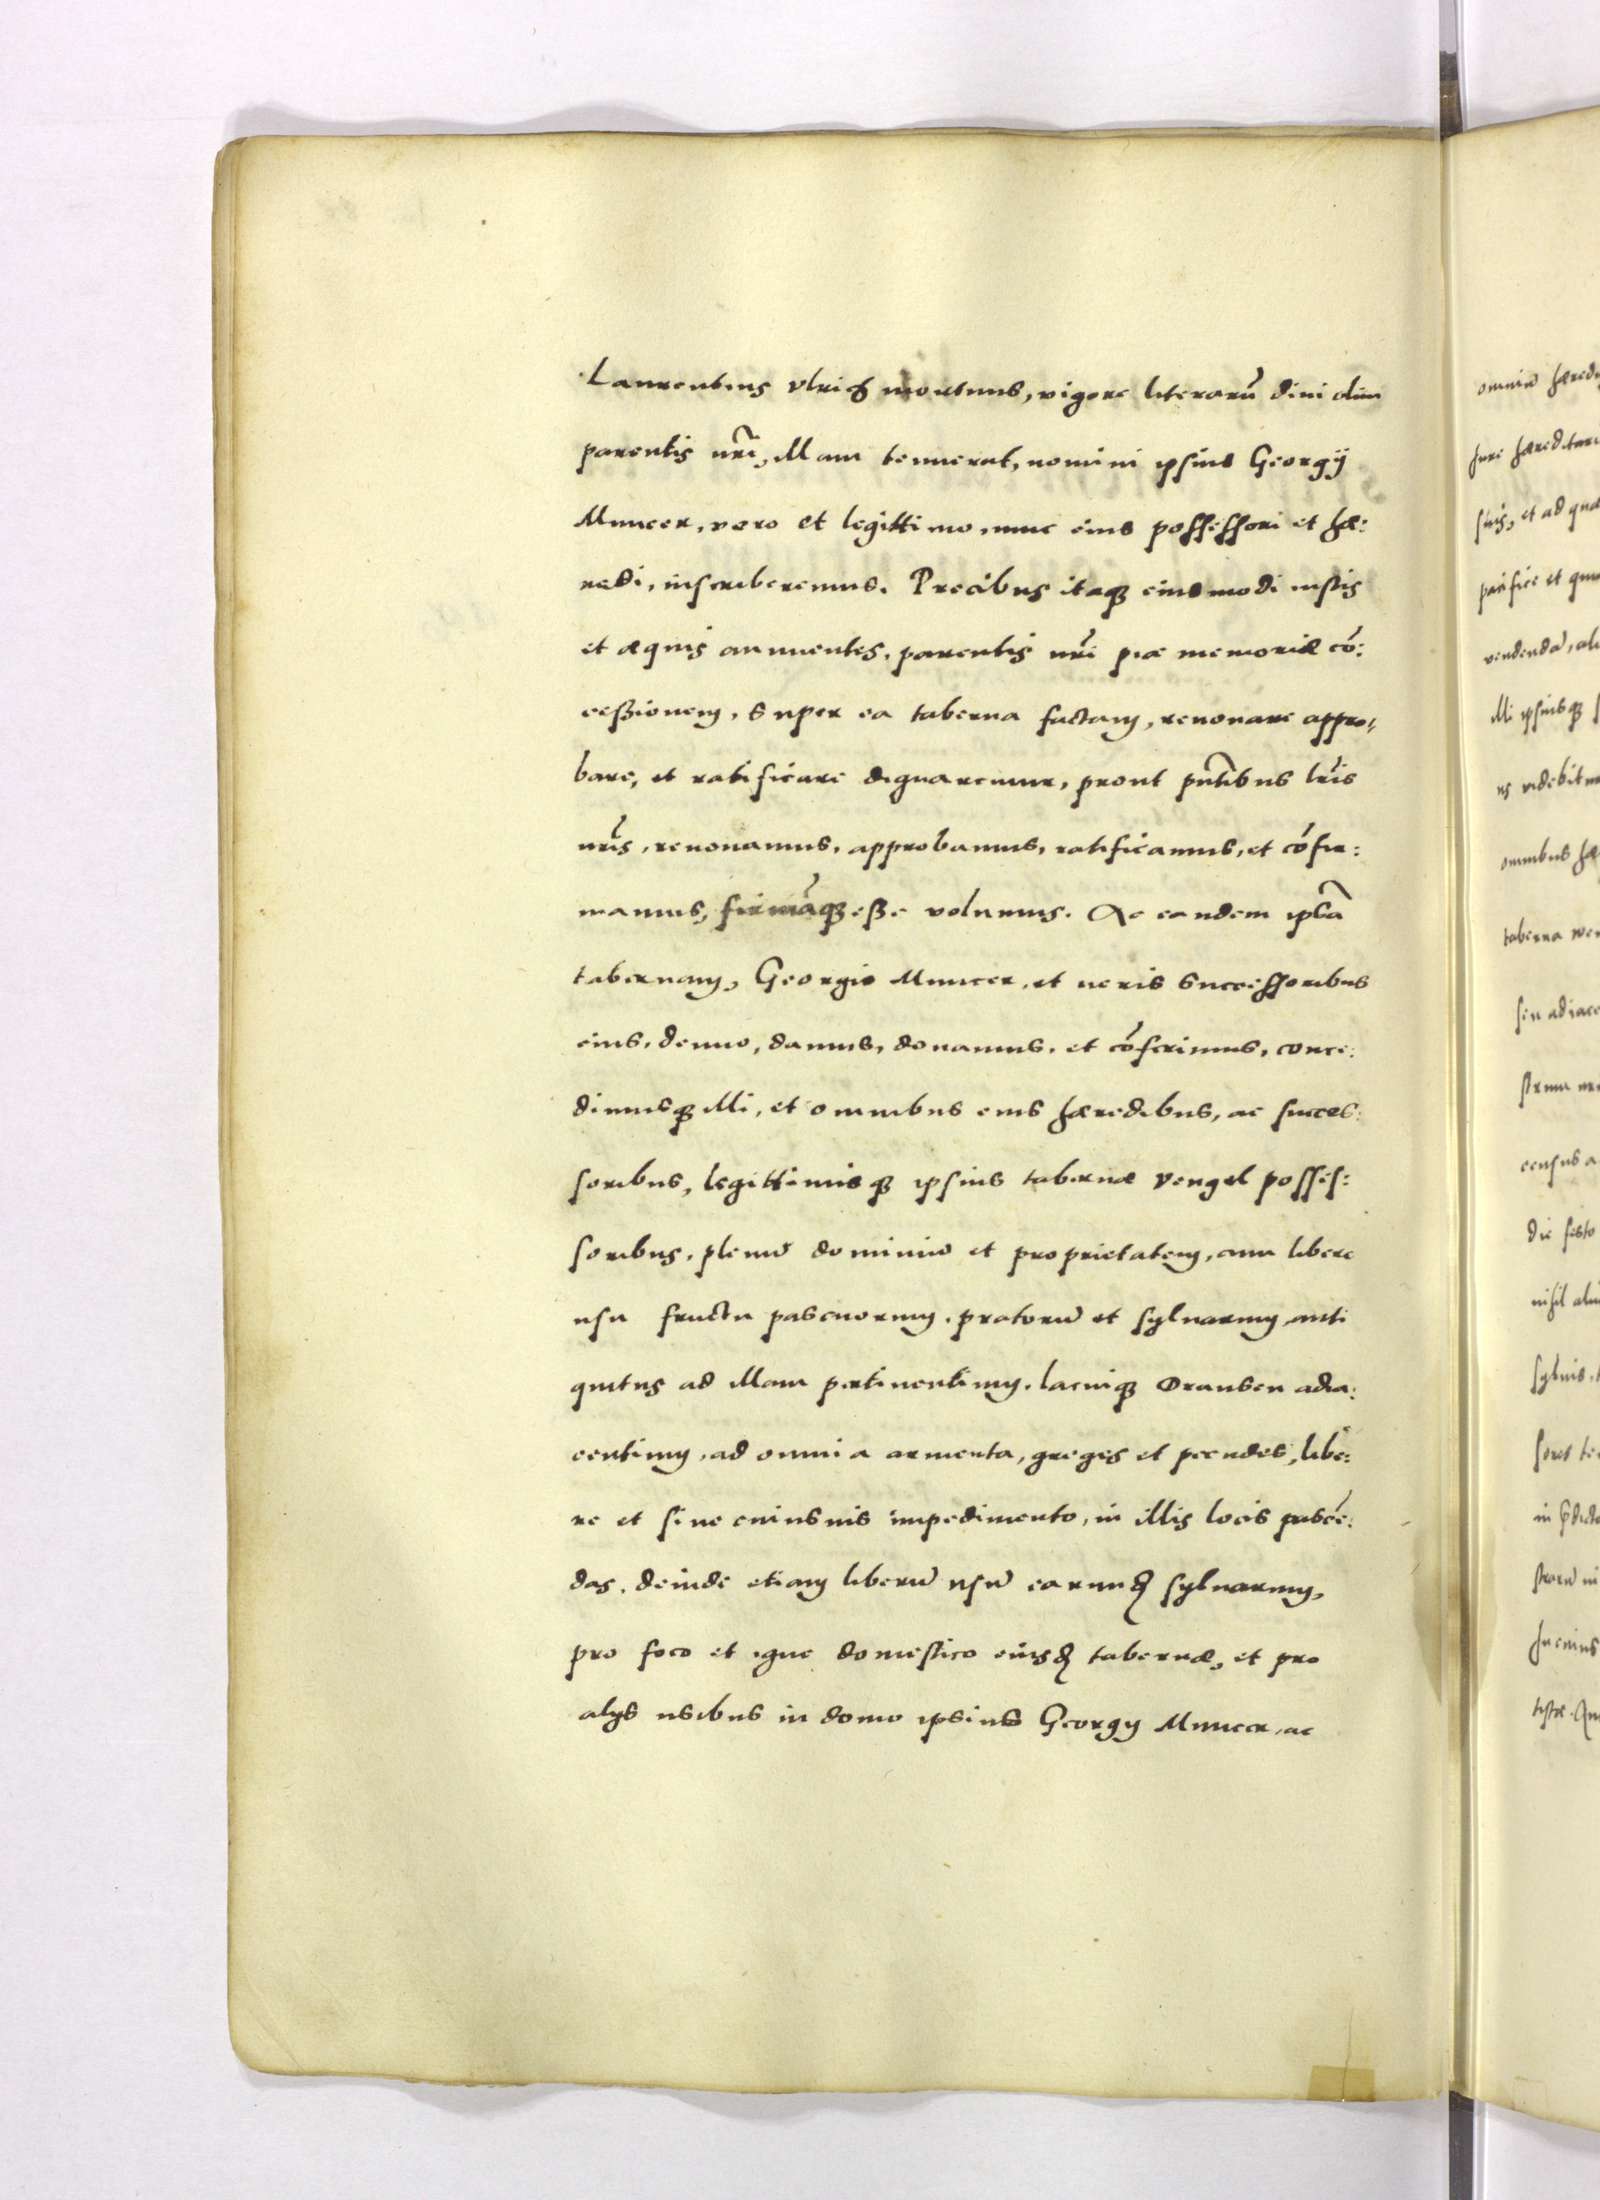 Laurentius Ulrich mortuus, vigore literarū divi olim
parentis nrī, illam tenuerat, nomini ipsius Georgij
Muncer, vero et legittimo nunc eius possessori et hæ:
redi, inscriberemus. Precibus itaq eiusmodi iustis
et æquis annuentes, parentis nrī piæ memoriæ cō:
cessionem, super ea taberna factam, renovare appro:
bare, et ratificare dignaremur, prout pntībus lrīs
nrīs, renovamus, approbamus, ratificamus, et cōfir:
mamus, firmāq esse volumus. Ac eandem ipsā
tabernam, Georgio Muncer, et veris successoribus
eius, denuo, damus, donamus, et cōferimus, conce:
dimusq illi, et omnibus eius hæredibus, ac succes:
soribus, legittimisq ipsius tabernæ Vengel posses:
soribus, plenū dominiū et proprietatem, cum libere
usu fructu pascuorum, pratorū et sylvarum anti
quitus ad illam pertinentium, lacuiq Drausen adia:
centium, ad omnia armenta, greges et pecudes, libe:
re et sine cuiusvis impedimento, in illis locis pascē:
das, deinde etiam liberū usū earund sylvarum,
pro foco et igne domestico eiusd tabernæ, et pro
alijs usibus in domo ipsius Georgij Muncer, ac
omniū hæredu
iure hæreditari
suis, et ad quæ
pacifice et qui
vendendā, ali
illi ipsiusq
us videbitur
omnibus hæ
taberna
seu adiace
census a
die festo
nihil aliu
sylvis,
sores te
in